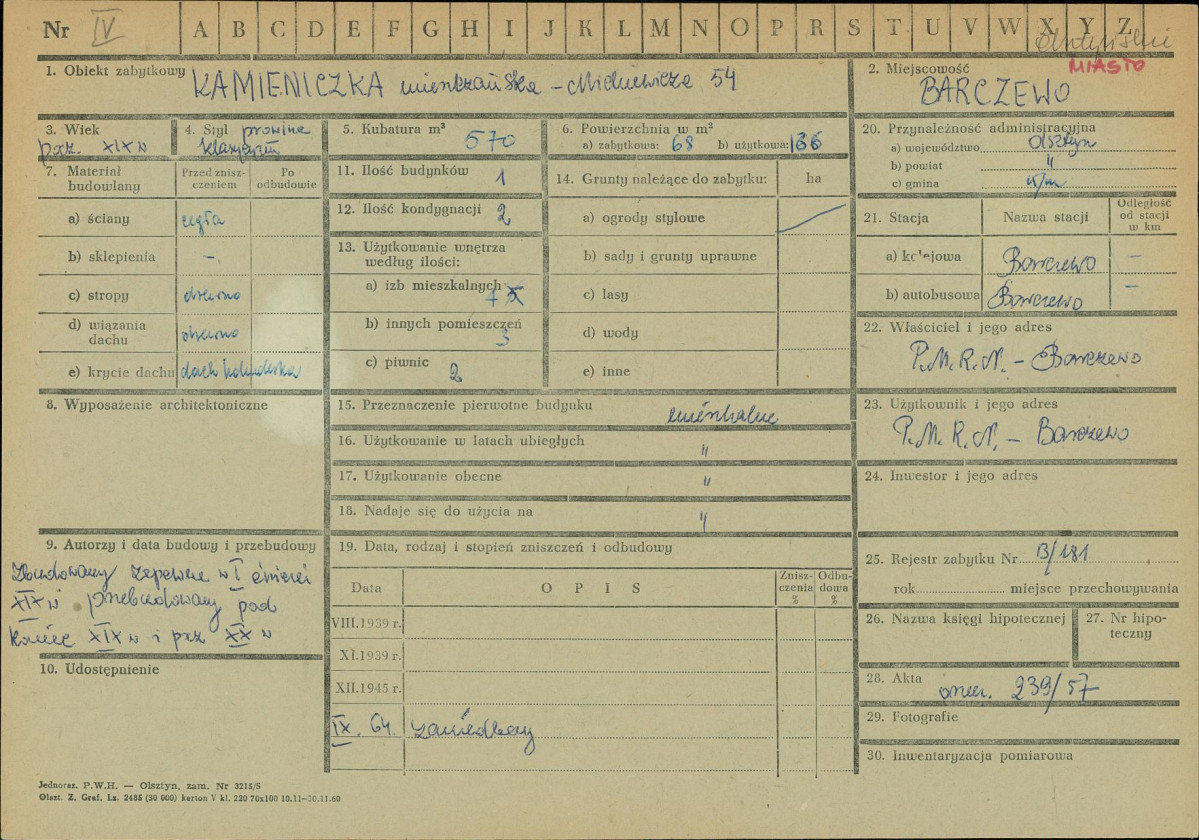 Nr IV A B C D E F G H I J K L M N O P R S T U V W X Y Z
MIASTO
1. Obiekt zabytkowy KAMIENICZKA mieszczańska - Mickiewicza 54
2. Miejscowość
BARCZEWO
3. Wiek
pocz. XIX w
4. Styl prowinc
klasycyzm
5. Kubatura m³ 570
6. Powierzchnia w m²
a) zabytkowa: 68 b) użytkowa: 136
7. Materiał budowlany
Przed zniszczeniem
Po odbudowie
a) ściany cegła
b) sklepienia -
c) stropy drewno
d) wiązania dachu drewno
e) krycie dachu dachówka
8. Wyposażenie architektoniczne
9. Autorzy i data budowy i przebudowy
Zbudowany zapewne w I ćwierci
XIX w przebudowany pod
koniec XIX w i pocz XX w
10. Udostępnienie
11. Ilość budynków 1
12. Ilość kondygnacji 2
13. Użytkowanie wnętrza
według ilości:
a) izb mieszkalnych 7
b) innych pomieszczeń 3
c) piwnic 2
14. Grunty należące do zabytku: ha
a) ogrody stylowe
b) sady i grunty uprawne
c) lasy
d) wody
e) inne
15. Przeznaczenie pierwotne budynku mieszkalne
16. Użytkowanie w latach ubiegłych "
17. Użytkowanie obecne "
18. Nadaje się do użycia na "
19. Data, rodzaj i stopień zniszczeń i odbudowy
Data O P I S Zniszczenia % Odbudowa %
VIII.1939 r.
XI.1939 r.
XII.1945 r.
IX. 64. zaniedbany
20. Przynależność administracyjna
a) województwo Olsztyn
b) powiat "
c) gmina w/m
21. Stacja Nazwa stacji Odległość od stacji w km
a) kolejowa Barczewo -
b) autobusowa Barczewo -
22. Właściciel i jego adres
P.M.R.N. - Barczewo
23. Użytkownik i jego adres
P.M.R.N. - Barczewo
24. Inwestor i jego adres
25. Rejestr zabytku Nr B/181
rok miejsce przechowywania
26. Nazwa księgi hipotecznej
27. Nr hipoteczny
28. Akta 239/57
29. Fotografie
30. Inwentaryzacja pomiarowa
Jednoraz. P.W.H. — Olsztyn, zam. Nr 3215/S
Olszt. Z. Graf. Lz. 2485 (30 000) karton V kl. 220 70x100 10.11—30.11.60